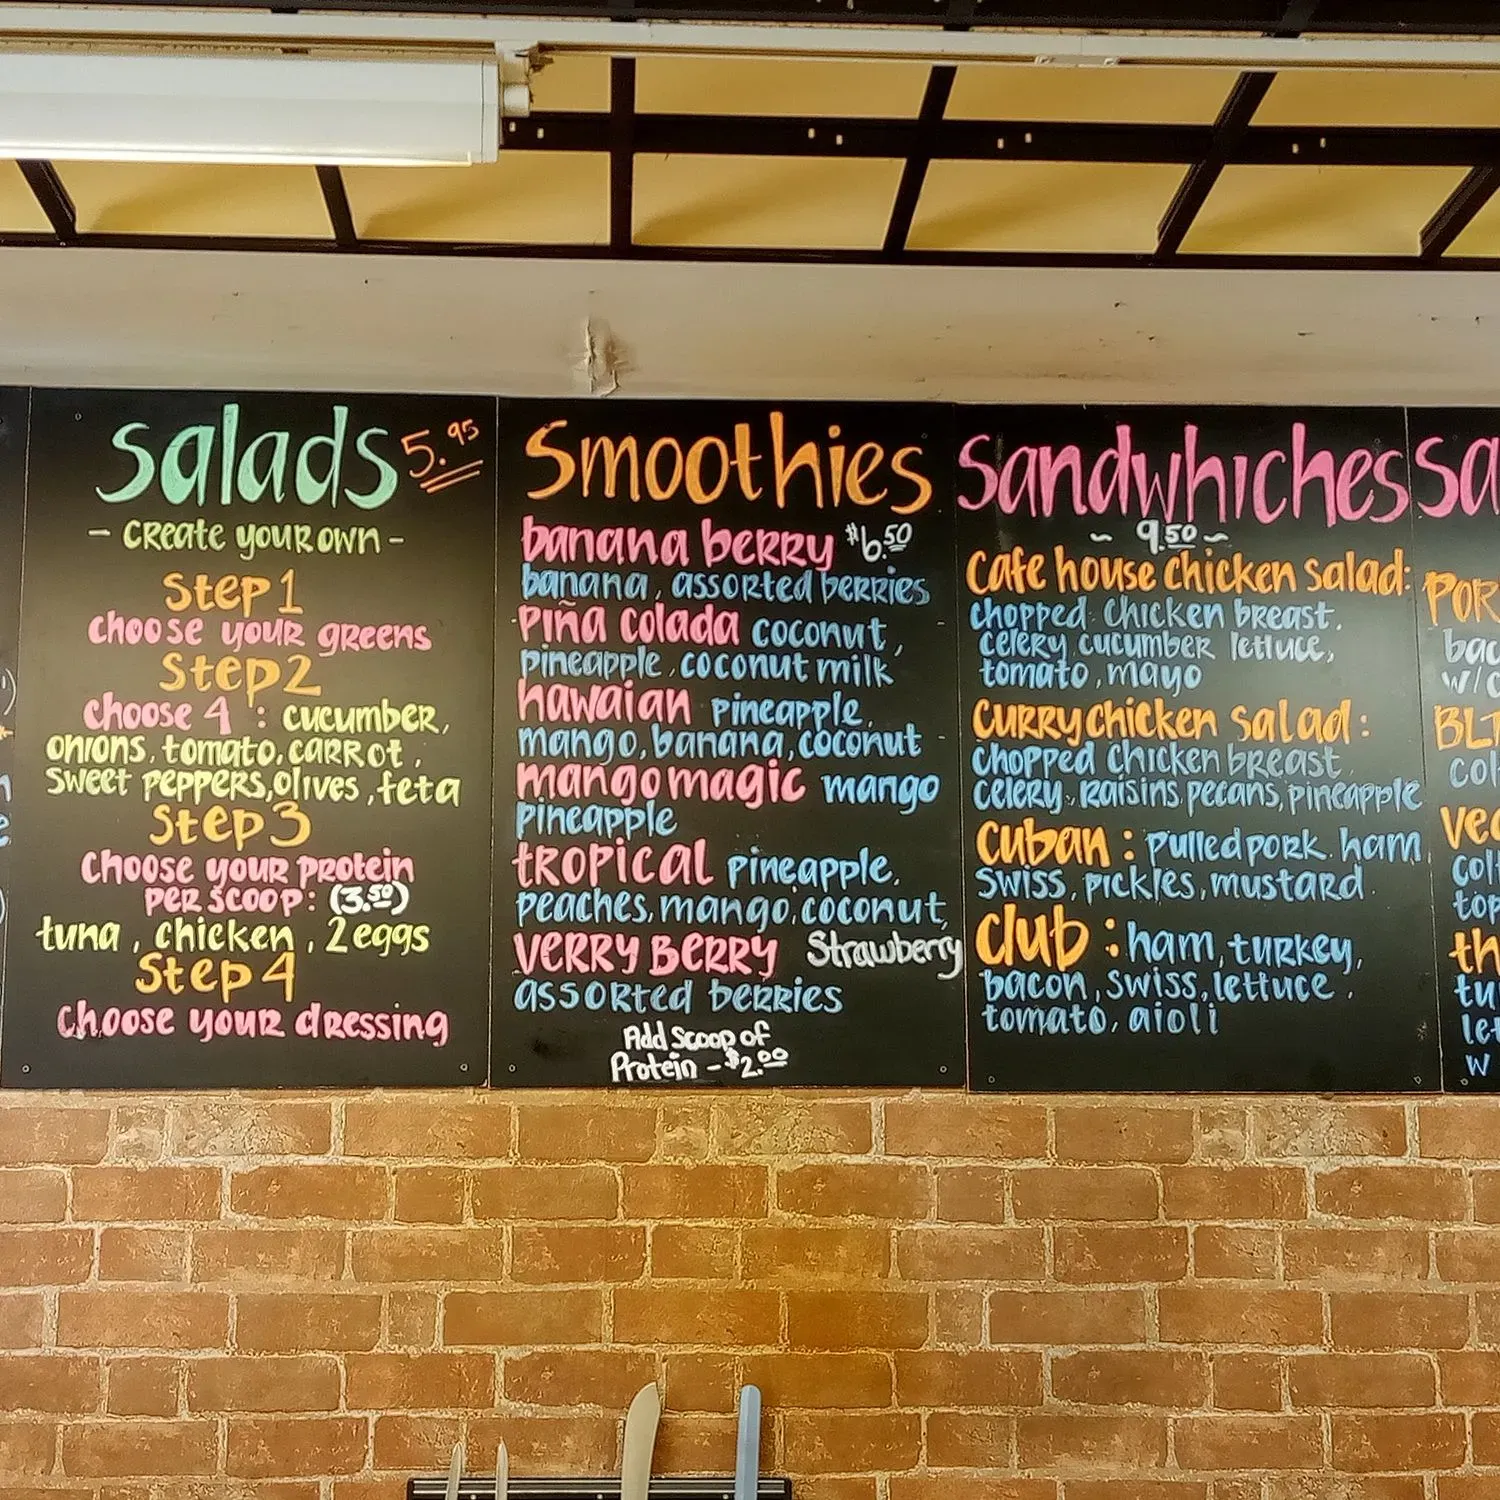 Salads 5.95
- Create your own -
Step 1
choose your greens
Step 2
choose 4 : cucumber,
onions, tomato, carrot,
sweet peppers, olives, feta
Step 3
Choose your protein
per scoop: (3.50)
tuna, chicken, 2 eggs
Step 4
Choose your dressing
Smoothies
banana berry $6.50
banana, assorted berries
Piña colada coconut,
pineapple, coconut milk
hawaian pineapple,
mango, banana, coconut
mango magic mango
pineapple
tropical pineapple,
peaches, mango, coconut,
Verry Berry Strawberry
assorted berries
Add Scoop of
Protein - $2.00
Sandwhiches
~ 9.50 ~
Cafe house chicken salad:
chopped chicken breast,
celery cucumber lettuce,
tomato, mayo
Curry chicken salad:
chopped chicken breast,
celery, raisins, pecans, pineapple
Cuban : pulled pork, ham
swiss, pickles, mustard
Club : ham, turkey,
bacon, swiss, lettuce,
tomato, aioli